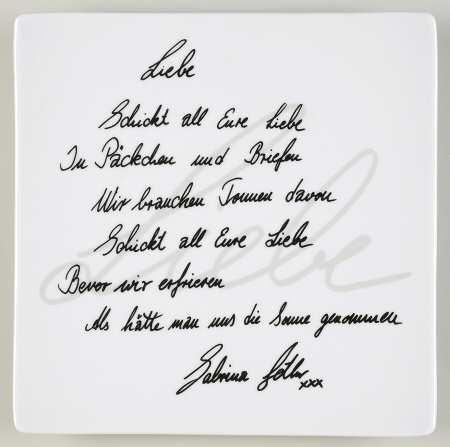 Liebe
Schickt all Eure Liebe
In Päckchen und Briefen
Wir brauchen Tonnen davon
Schickt all Eure Liebe
Bevor wir erfrieren
Als hätte man uns die Sonne genommen
Sabrina Setlur
xxx
Liebe